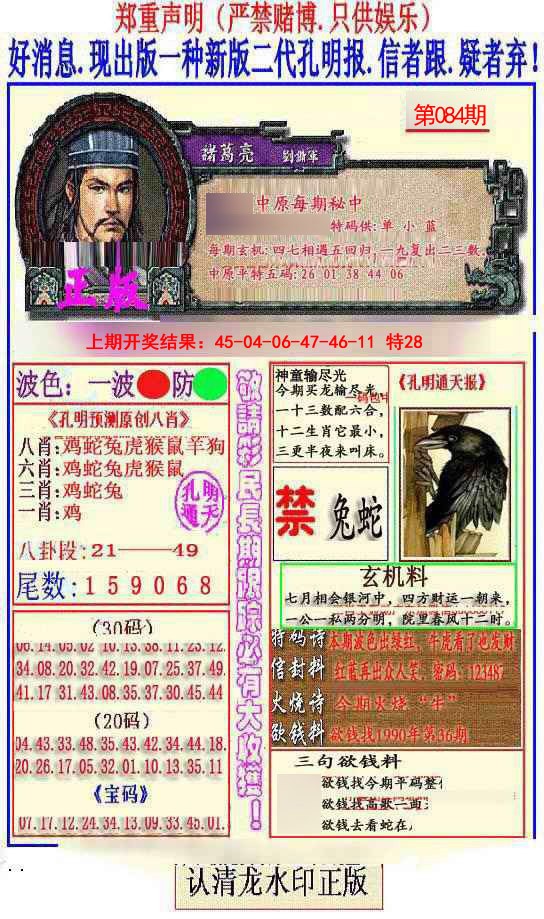 郑重声明（严禁赌博.只供娱乐）
好消息.现出版一种新版二代孔明报.信者跟.疑者弃!
第084期
諸葛亮 劉備軍
中原每期秘中
特码供:单 小 蓝
每期玄机:四七相遇五回归,一九复出二三数.
中原平特五码:26 01 38 44 06
正版
上期开奖结果：45-04-06-47-46-11 特28
波色：一波 防
《孔明预测原创八肖》
八肖:鸡蛇兔虎猴鼠羊狗
六肖:鸡蛇兔虎猴鼠
三肖:鸡蛇兔
一肖:鸡
孔明
通天
八卦段:21——49
尾数:159068
(30码)
06.14.05.02.10.13.38.11.23.12.
34.08.20.32.42.19.07.25.37.49.
41.17.31.43.08.35.37.30.45.44
(20码)
04.43.33.48.35.43.42.34.44.18.
20.26.17.05.32.01.10.13.35.11
《宝码》
07.17.12.24.34.13.09.33.45.01.
敬請彩民長期跟踪必有大收獲！
神童输尽光
今期买龙输尽光,
一十三数配六合,
十二生肖它最小,
三更半夜来叫床。
《孔明通天报》
禁 兔蛇
玄机料
七月相会银河中，四方财运一朝来，
一公一私两分明，院里春风十二时。
特码诗 本期波色出绿红，牛虎看了也发财
信封料 红蓝再出众人笑，密码：123487
火烧诗 今期火烧“牛”
欲钱料 欲钱找1990年第36期
三句欲钱料
欲钱找今期平码整
欲钱找高歌二曲
欲钱去看蛇在
认清龙水印正版